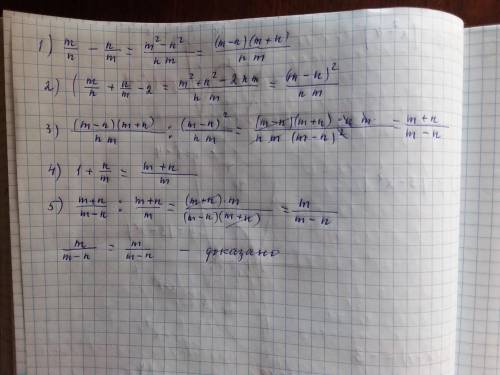 1) m/n − n/m = (m² − n²)/(n m) = ((m−n)(m+n))/(n m)
2) (m/n + n/m − 2 = (m² + n² − 2nm)/(n m) = (m − n)²/(n m)
3) ((m−n)(m+n))/(n m) : (m−n)²/(n m) = ((m−n)(m+n) · n m)/(n m (m−n)²) = (m+n)/(m−n)
4) 1 + n/m = (m+n)/m
5) (m+n)/(m−n) : (m+n)/m = ((m+n)·m)/((m−n)(m+n)) = m/(m−n)
m/(m−n) = m/(m−n) — доказано